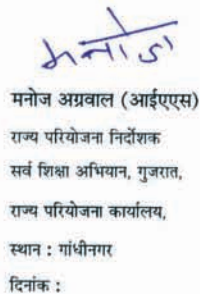 मनोज
मनोज अग्रवाल (आईएएस)
राज्य परियोजना निर्देशक
सर्व शिक्षा अभियान, गुजरात,
राज्य परियोजना कार्यालय,
स्थान : गांधीनगर
दिनांक :